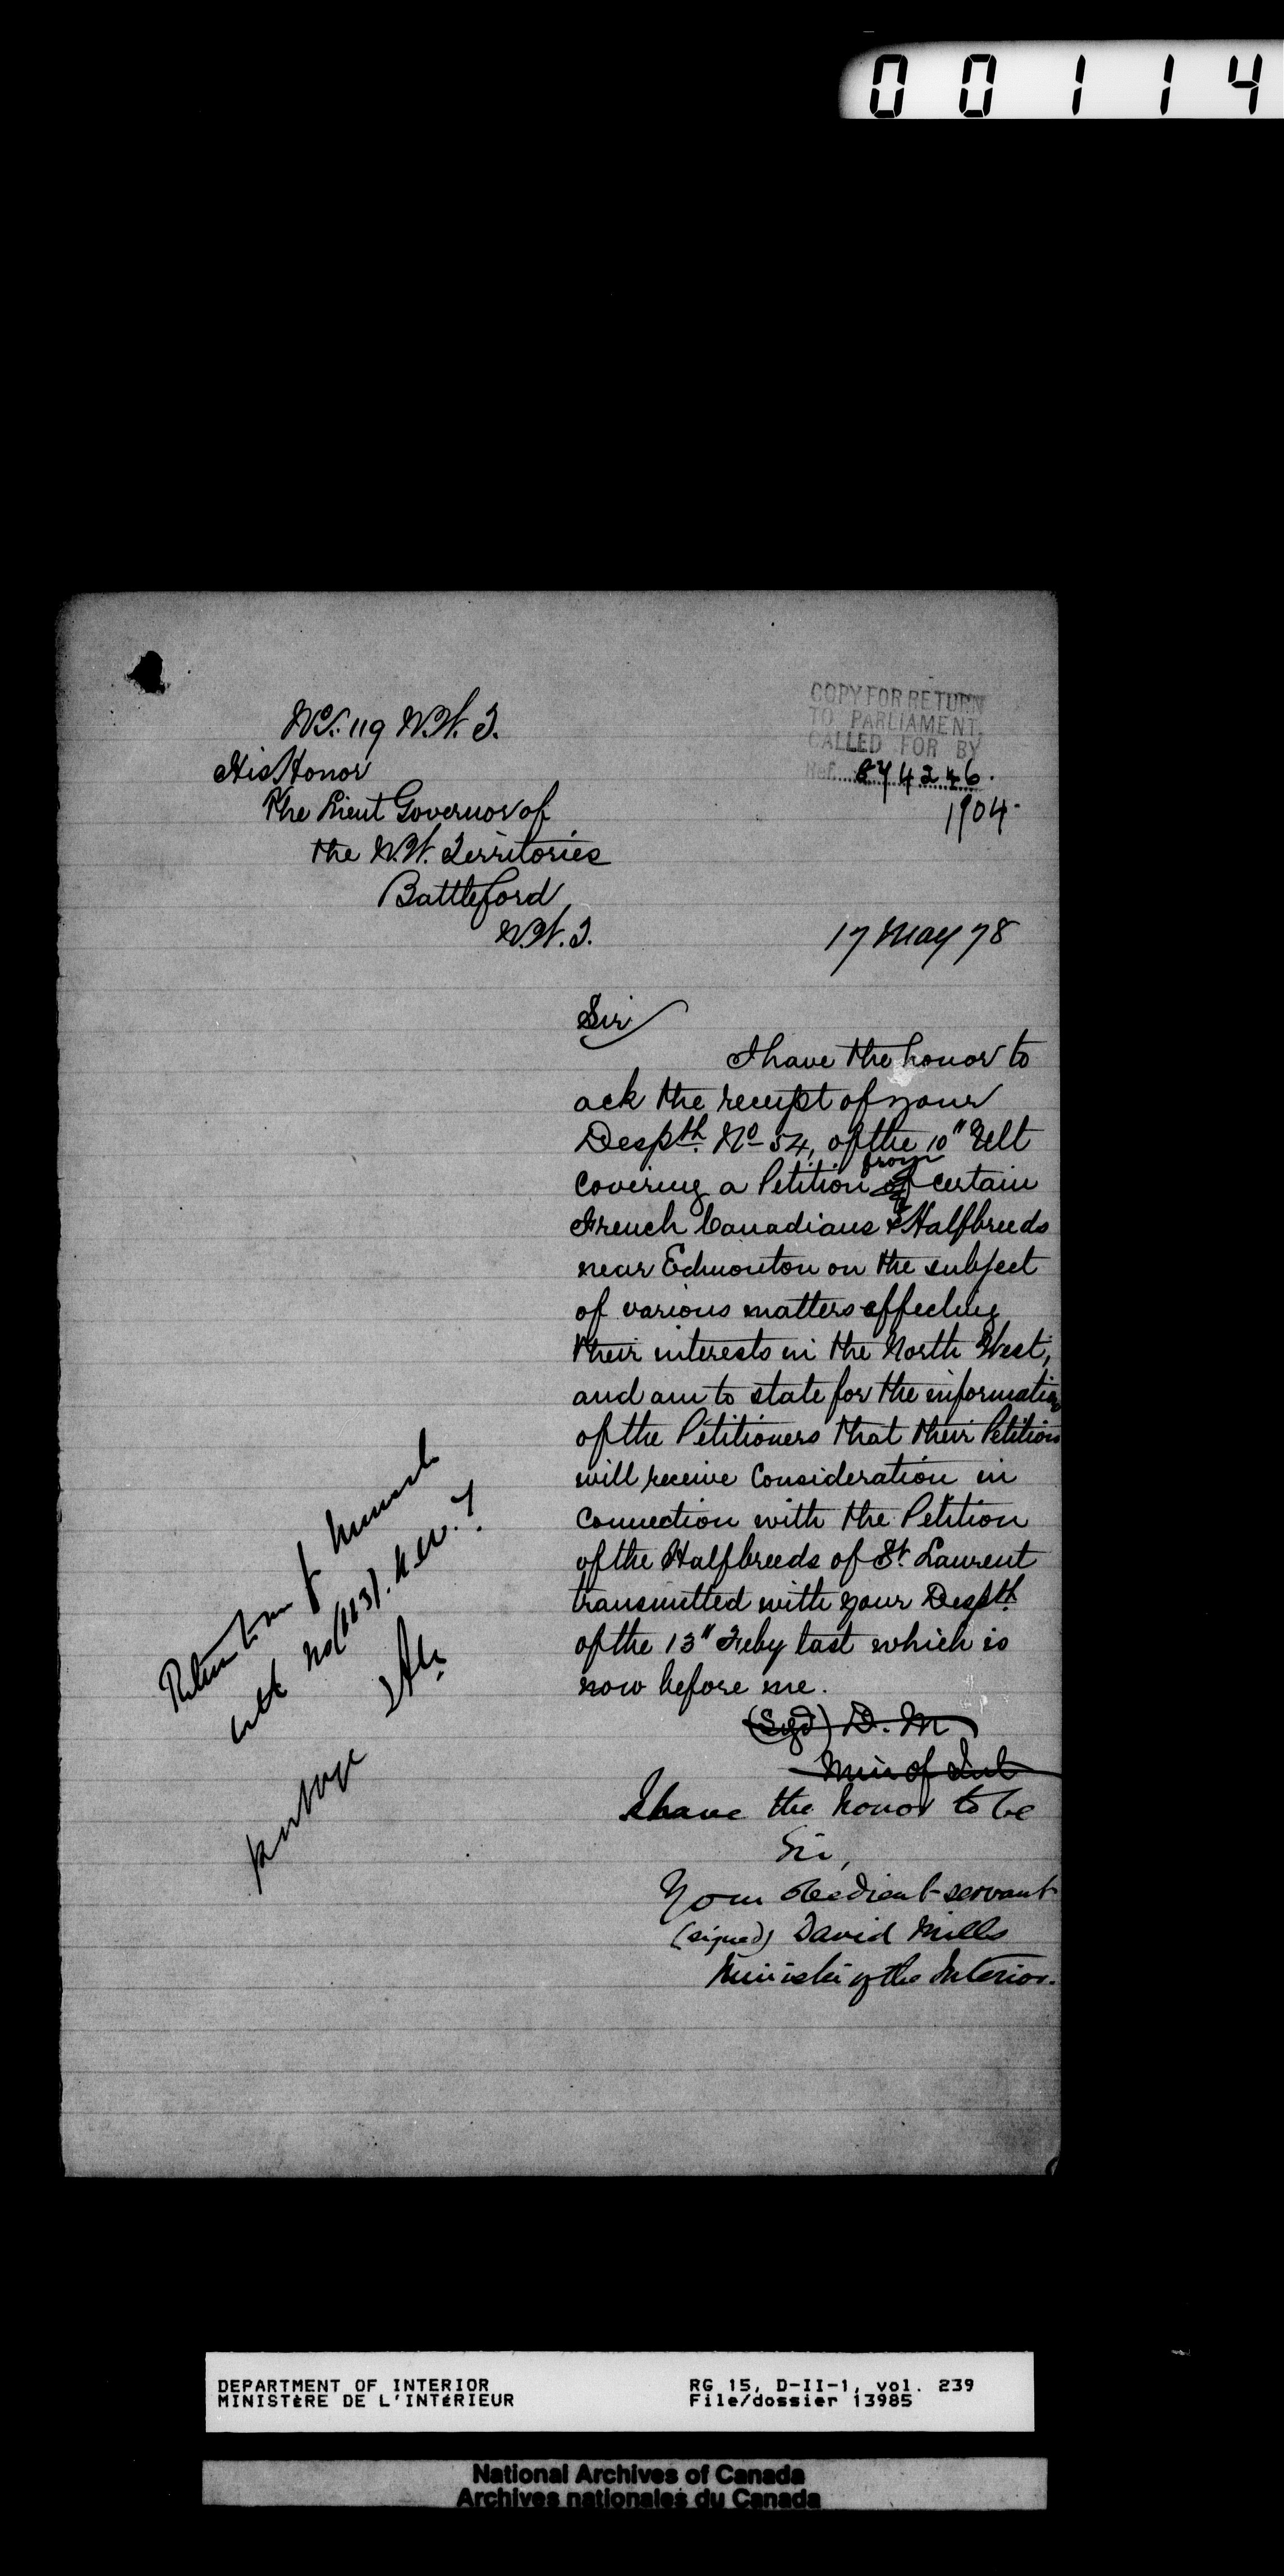 00114
No. 119 N.W.T.
COPY FOR RETURN
TO PARLIAMENT,
CALLED FOR BY
Ref. 874246.
1904.
His Honor
The Lieut Governor of
the N.W. Territories
Battleford
N.W.T.
17 May 78
Sir
I have the honor to
ack the receipt of your
Despth. No 54, of the 10" Ult
covering a Petition from certain
French Canadians & Halfbreeds
near Edmonton on the subject
of various matters affecting
their interests in the North West,
and am to state for the information
of the Petitioners that their Petition
will receive Consideration in
Connection with the Petition
of the Halfbreeds of St. Laurent
transmitted with your Despth
of the 13" Feby last which is
now before me.
(Sgd) D. M
Min of Int
I have the honor to be
Sir,
Your obedient servant
(signed) David Mills
Minister of the Interior.
DEPARTMENT OF INTERIOR
MINISTÈRE DE L'INTÉRIEUR
RG 15, D-II-1, vol. 239
File/dossier 13985
National Archives of Canada
Archives nationales du Canada